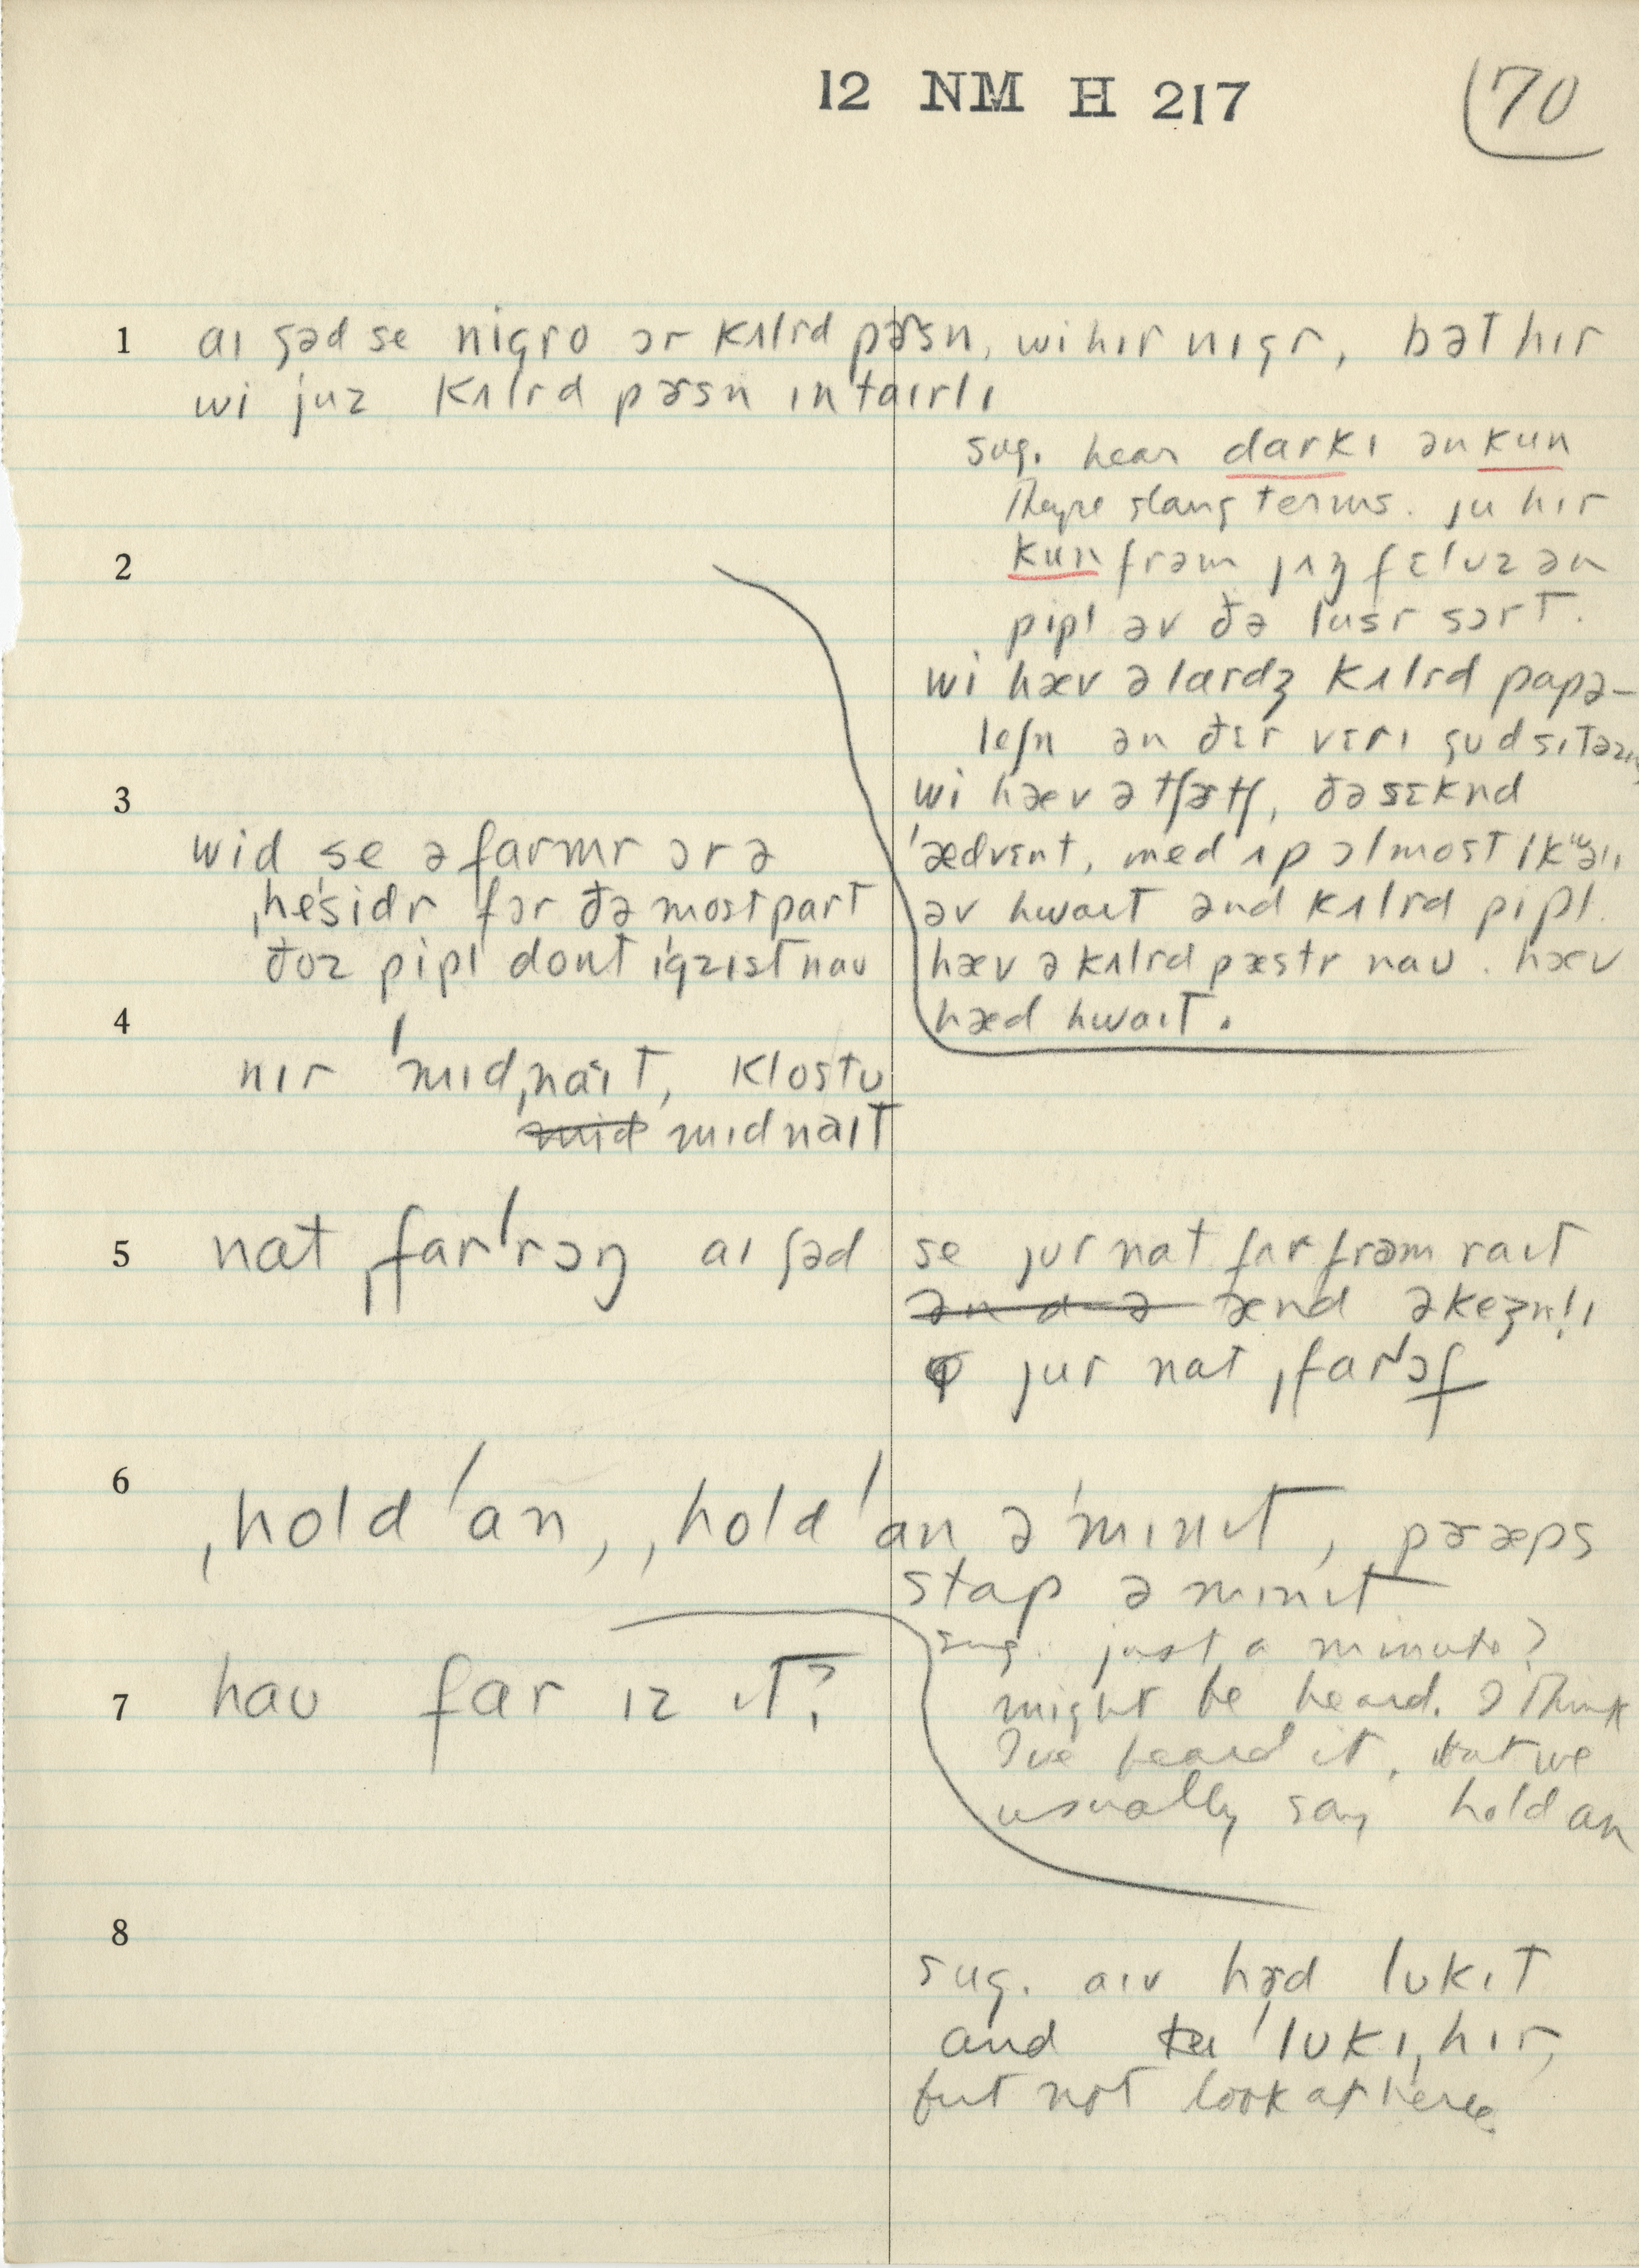 12 NM H 217
70
1 aɪ ʃəd se nigro ɔr kʌlrd pɚsn, wi hɪr nɪgr, bət hɪr
wi juz kʌlrd pɚsn ɪntaɪrlɪ
sug. hear darkɪ ən kun
They're slang terms. ju hɪr
2
kun frəm jʌŋ fɛlʊz ən
pipl əv ðə lusr sɔrt.
wi hæv ə lardʒ kʌlrd papə-
leʃn ən ðɛr vɛrɪ gud
3
wi hæv ə tʃɚtʃ, ðə sɛknd
wid se ə farmr ɔr ə
ˈædvɛnt, med ʌp ɔlmost
ˌheˈsidr fɔr ðə most part
əv hwaɪt ənd kʌlrd pipl.
ðoz pipl dont ɪgzɪst naʊ
hæv ə kʌlrd pæstr naʊ. hæv
4
hæd hwaɪt.
nɪr ˈmɪdˌnaɪt, klostʊ
mid mɪdnaɪt
5 nat ˌfarˈrɔŋ aɪ ʃəd se jur nat far frəm raɪt
ən d ə ænd əkeʒnlɪ
jur nat ˌfarˈɔf
6
ˌholdˈan, ˌholdˈan əˈmɪnɪt, præps
stap ə mɪnɪt
sug. just a minute?
7 haʊ far ɪz ɪt?
might be heard. I think
I've heard it, but we
usually say hold an
8
sug. aɪv hɚd lʊkɪt
and ˈlʊkɪˌhɪr,
but not look at here